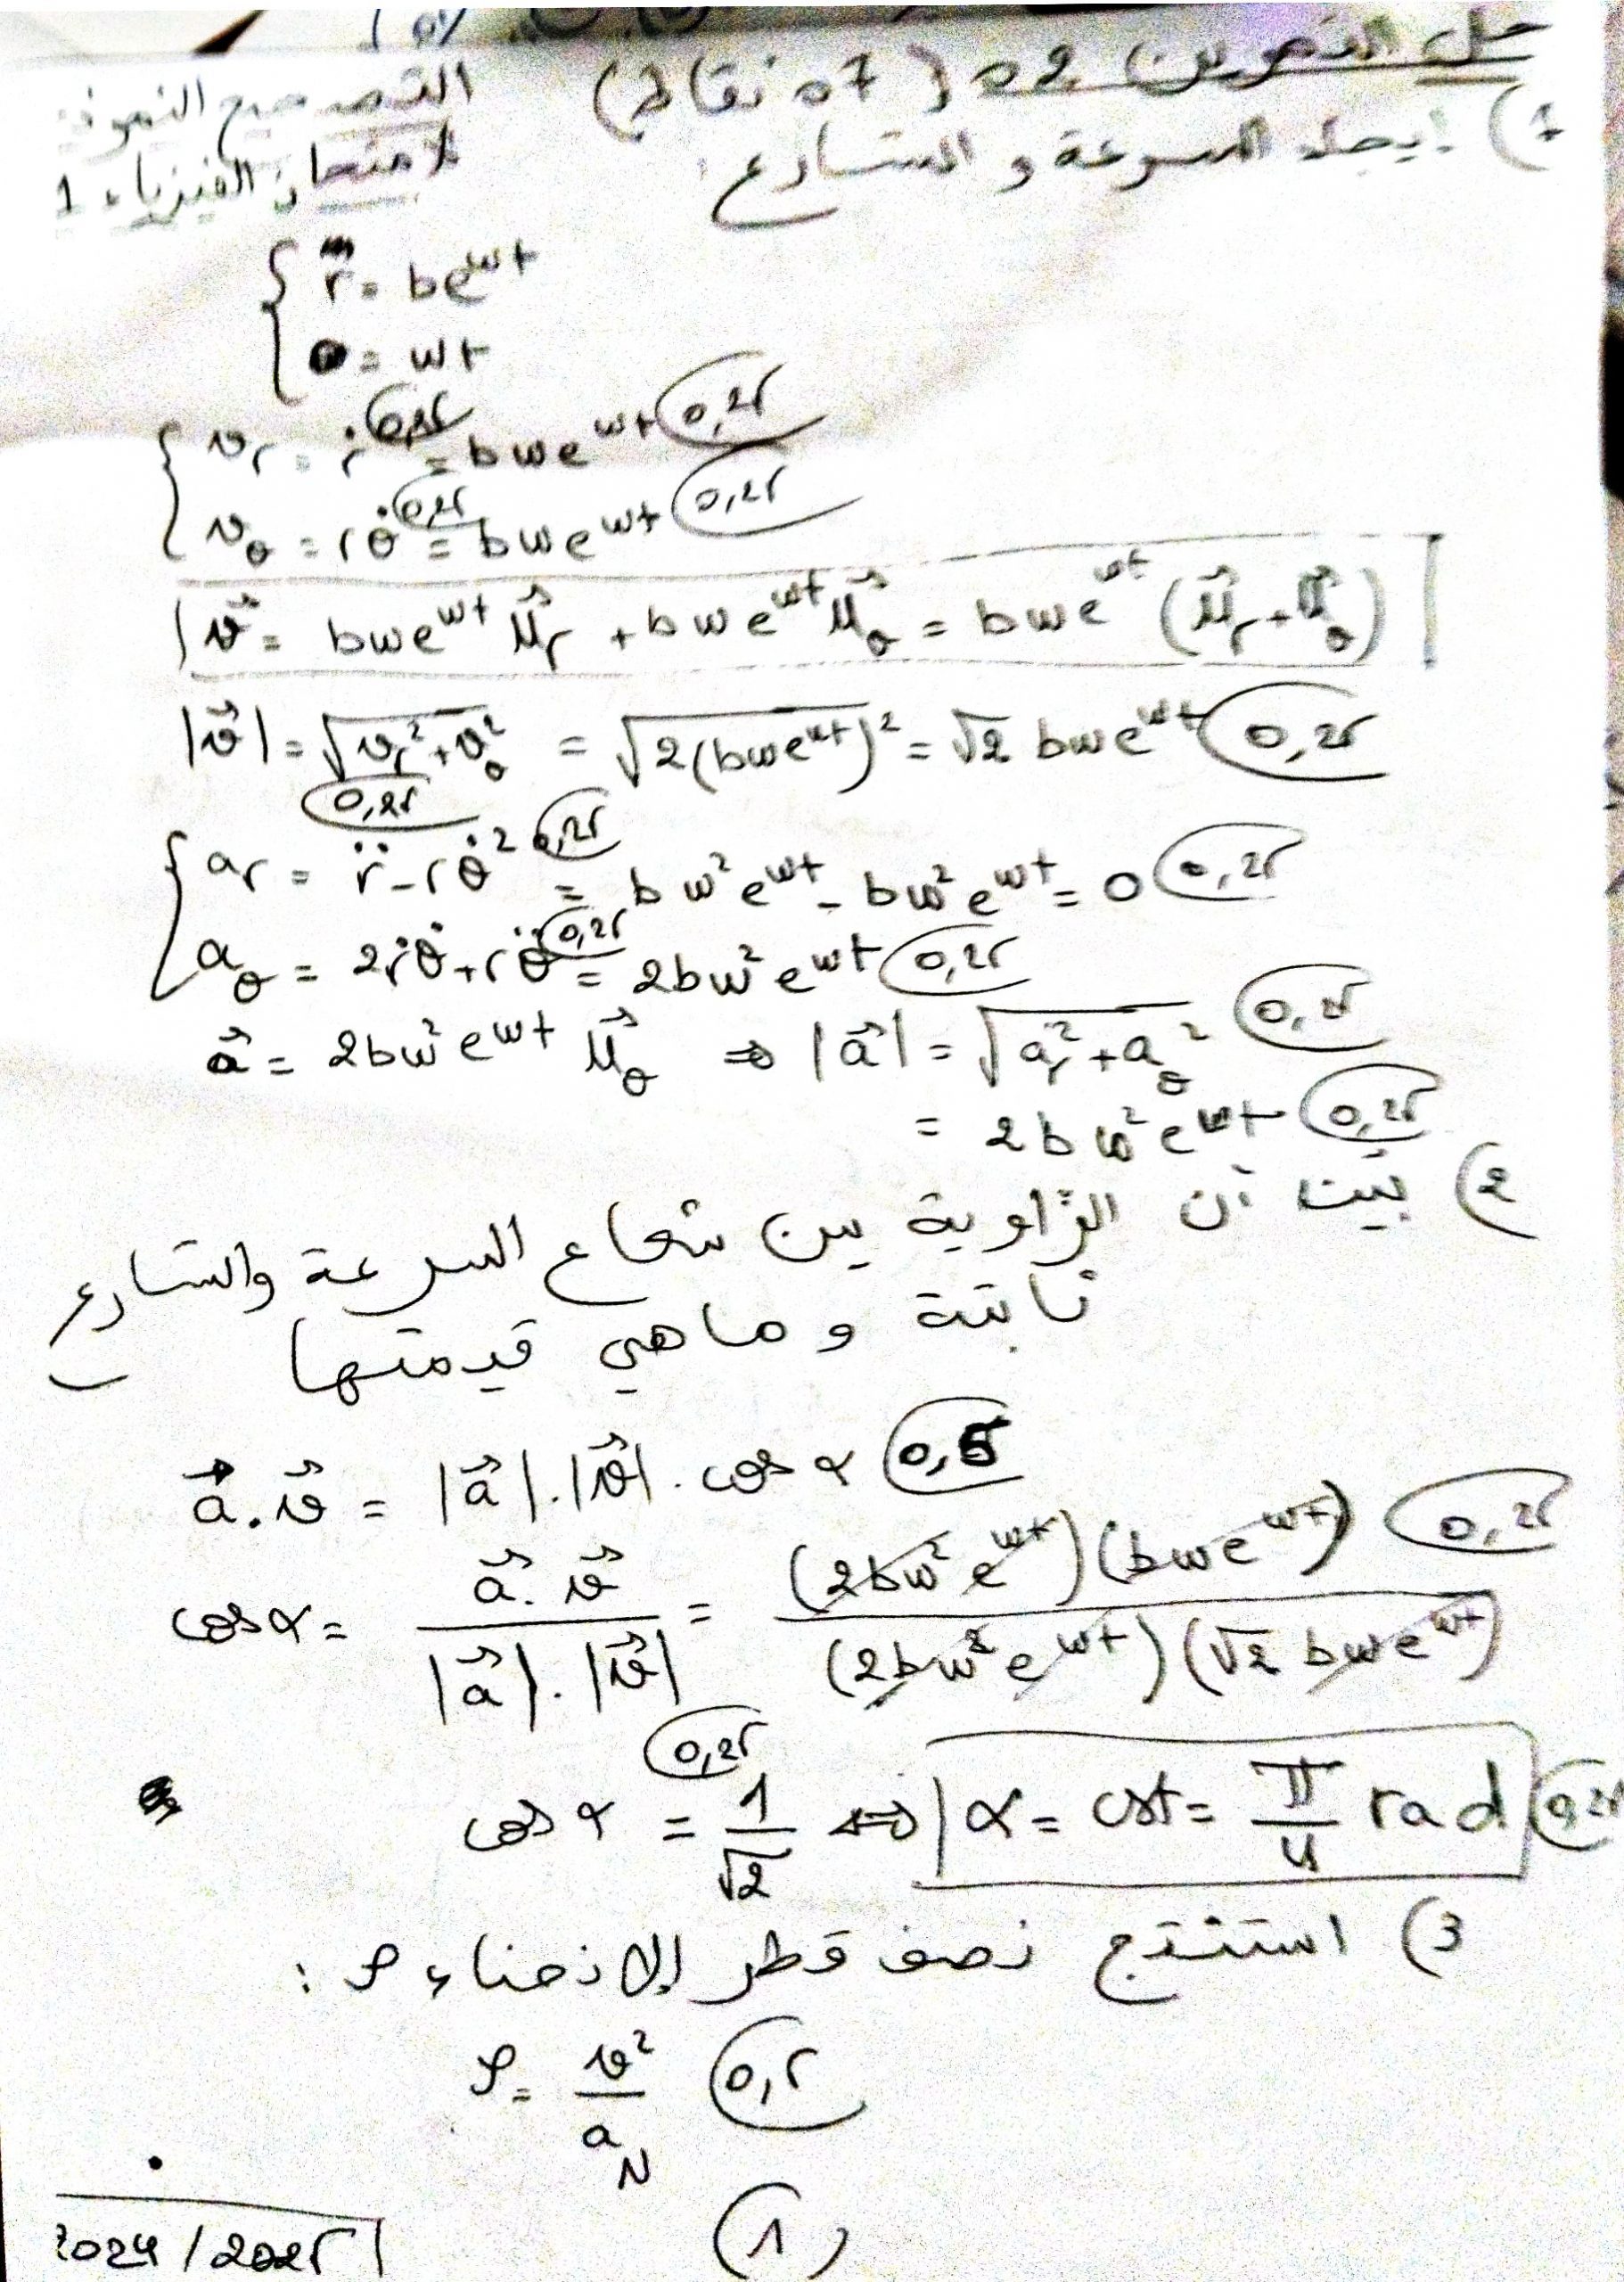 حل التمرين 02 (07 نقاط)
التصحيح النموذ
لامتحان الفيزياء 1
1) إيجاد السرعة و التسارع:
{ r⃗ = be^{ωt}
θ = ωt
{ v_r = ṙ (0,25) = bωe^{ωt} (0,25)
v_θ = rθ̇ (0,25) = bωe^{ωt} (0,25)
v⃗ = bωe^{ωt} u⃗_r + bωe^{ωt} u⃗_θ = bωe^{ωt} (u⃗_r + u⃗_θ)
|v⃗| = √(v_r² + v_θ²) = √(2(bωe^{ωt})²) = √2 bωe^{ωt} (0,25)
(0,25)
{ a_r = r̈ - rθ̇² (0,25) = bω²e^{ωt} - bω²e^{ωt} = 0 (0,25)
a_θ = 2ṙθ̇ + rθ̈ (0,25) = 2bω²e^{ωt} (0,25)
a⃗ = 2bω²e^{ωt} u⃗_θ ⇒ |a⃗| = √(a_r² + a_θ²) (0,25)
= 2bω²e^{ωt} (0,25)
2) بيّن أن الزاوية بين شعاع السرعة والتسارع
ثابتة وما هي قيمتها
a⃗.v⃗ = |a⃗|.|v⃗|.cos α (0,5)
cos α = a⃗.v⃗ / |a⃗|.|v⃗| = (2bω²e^{ωt})(bωe^{ωt}) / (2bω²e^{ωt})(√2 bωe^{ωt}) (0,25)
(0,25)
cos α = 1/√2 ⇔ α = cst = π/4 rad (0,25)
3) استنتج نصف قطر الإنحناء ρ :
ρ = v²/a_N (0,5)
(1)
2024/2025